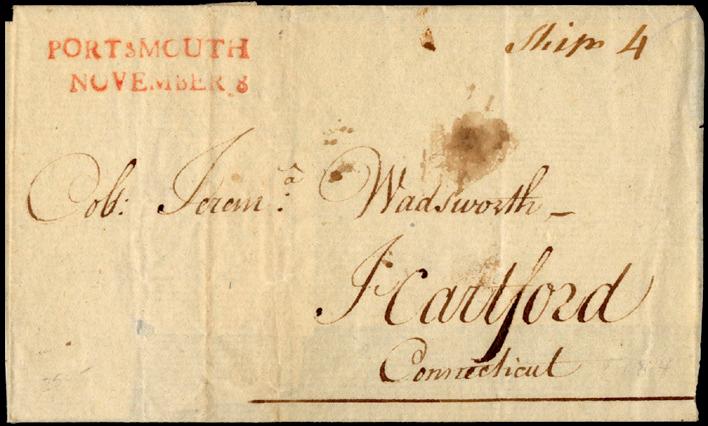 PORTSMOUTH
NOVEMBER 8
Ship 4
Col: Jerem:ª Wadsworth
Hartford
Connecticut